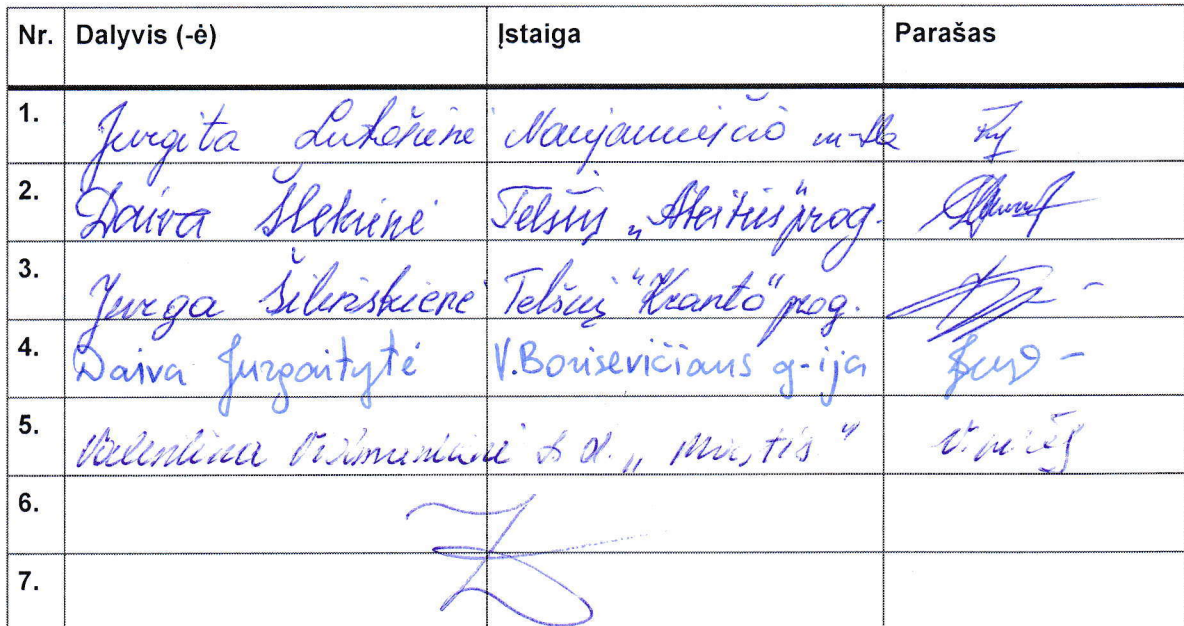 Nr. Dalyvis (-ė) Įstaiga Parašas
1. Jurgita Lukošienė Marijampolės m-kla
2. Daiva Šlekienė Telšių „Ateities" prog.
3. Jurga Šilinskienė Telšių "Kranto" prog.
4. Daiva Jurgaitytė V. Borisevičiaus g-ija
5. Valentina l. d. „Mastis"
6.
7.